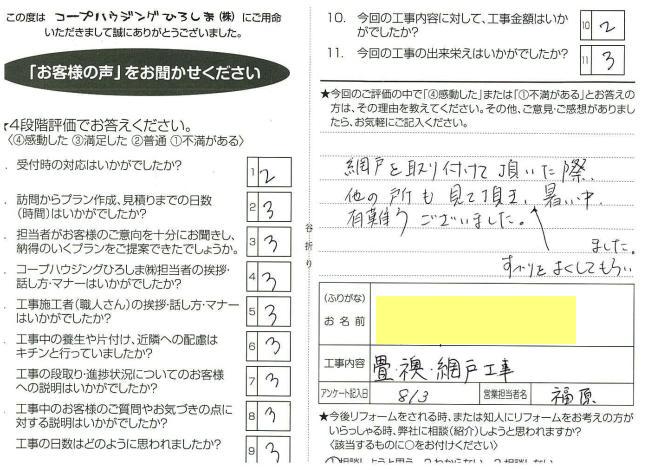 この度は コープハウジングひろしま(株) にご用命
いただきまして誠にありがとうございました。
「お客様の声」をお聞かせください
4段階評価でお答えください。
〈④感動した ③満足した ②普通 ①不満がある〉
. 受付時の対応はいかがでしたか?
1 2
. 訪問からプラン作成、見積りまでの日数
(時間)はいかがでしたか?
2 3
. 担当者がお客様のご意向を十分にお聞きし、
納得のいくプランをご提案できたでしょうか。
3 3
. コープハウジングひろしま㈱担当者の挨拶・
話し方・マナーはいかがでしたか?
4 3
. 工事施工者(職人さん)の挨拶・話し方・マナー
はいかがでしたか?
5 3
. 工事中の養生や片付け、近隣への配慮は
キチンと行っていましたか?
6 3
. 工事の段取り・進捗状況についてのお客様
への説明はいかがでしたか?
7 3
. 工事中のお客様のご質問やお気づきの点に
対する説明はいかがでしたか?
8 3
工事の日数はどのように思われましたか?
9 3
谷折り
10. 今回の工事内容に対して、工事金額はいか
がでしたか?
10 2
11. 今回の工事の出来栄えはいかがでしたか?
11 3
★今回のご評価の中で「④感動した」または「①不満がある」とお答え
の方は、その理由を教えてください。その他、ご意見・ご感想がありまし
たら、お気軽にご記入ください。
網戸を取り付けて頂いた際、
他の所も見て頂き、暑い中、
有難うございました。
ました。
すべりをよくしてもらい
(ふりがな)
お名前
工事内容 畳・襖・網戸工事
アンケート記入日 8/3 営業担当者名 福原
★今後リフォームをされる時、または知人にリフォームをお考えの方が
いらっしゃる時、弊社に相談(紹介)しようと思われますか?
〈該当するものに○をお付けください〉